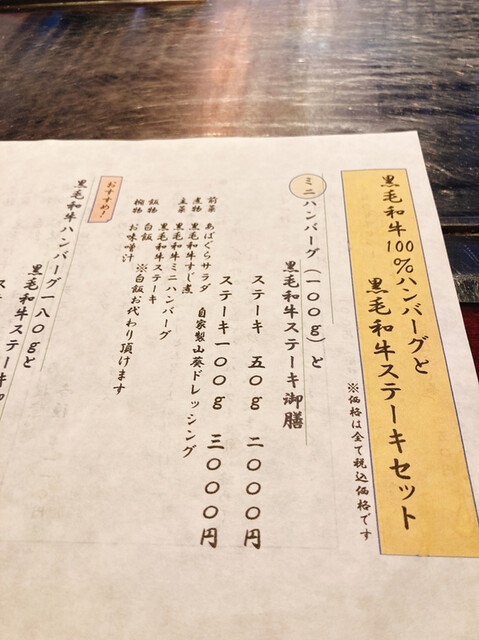 黒毛和牛100%ハンバーグと
黒毛和牛ステーキセット
※価格は全て税込価格です
ミニハンバーグ（一〇〇g）と
黒毛和牛ステーキ御膳
ステーキ 五〇g 二〇〇〇円
ステーキ一〇〇g 三〇〇〇円
前菜 あばぐらサラダ 自家製山葵ドレッシング
煮物 黒毛和牛すじ煮
主菜 黒毛和牛ミニハンバーグ
黒毛和牛ステーキ
飯物 白飯 ※白飯お代わり頂けます
椀物 お味噌汁
おすすめ！
黒毛和牛ハンバーグ一八〇gと
黒毛和牛ステーキ